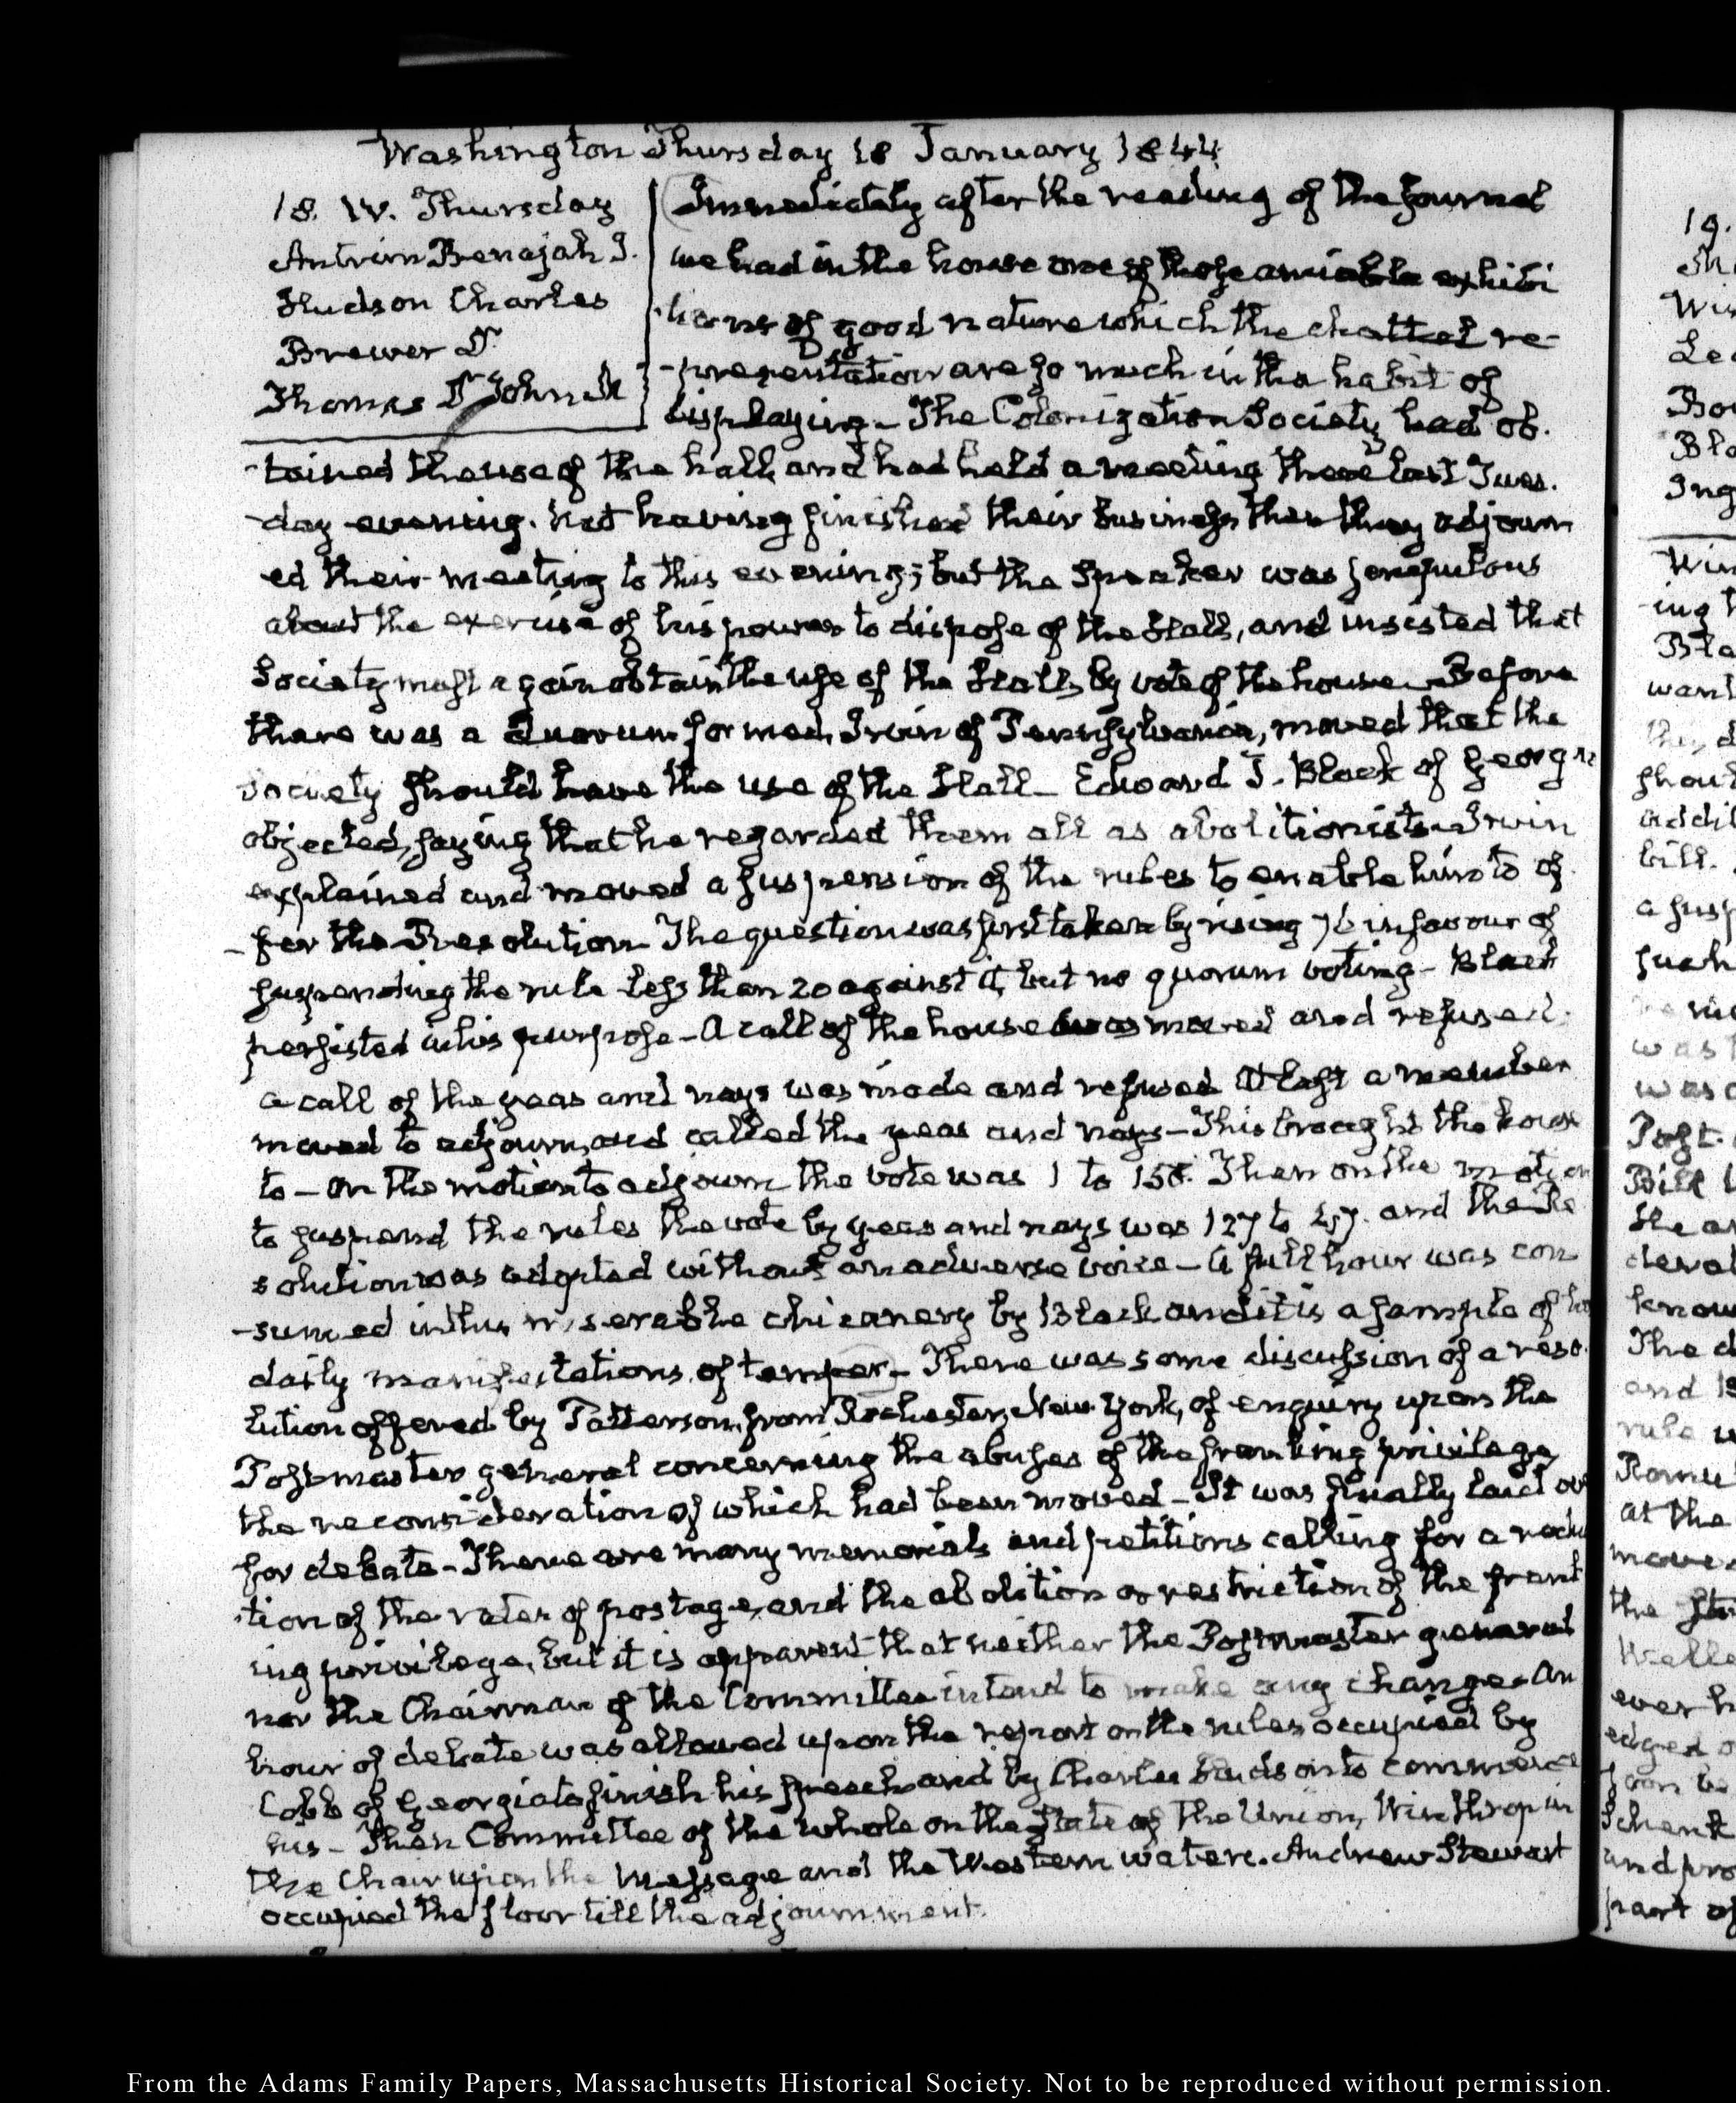 Washington Thursday 18 January 1844
18. IV. Thursday
Antrim Benajah S.
Hudson Charles
Brewer D.
Thomas D John
Immediately after the reading of the Journal
we had in the house one of those amiable exhibi
tions of good nature which the chattel re-
-presentation are so much in the habit of
displaying – The Colonization Society had ob.
-tained the use of the hall, and had held a meeting there last Tues.
-day evening. Not having finished their business then they adjourn
ed their meeting to this evening; but the Speaker was scrupulous
about the exercise of his power to dispose of the Hall, and insisted that
Society must again obtain the use of the Hall, by vote of the house – Before
there was a Quorum formed, Irvin of Pennsylvania, moved that the
Society should have the use of the Hall – Edward J. Black of Georgia
objected, saying that he regarded them all as abolitionists – Irvin
explained and moved a suspension of the rules to enable him to of.
-fer the Resolution – The question was first taken by rising 76 in favour of
suspending the rule less than 20 against it, but no quorum voting – Black
persisted in his purpose – A call of the house was moved and refused.
a call of the yeas and nays was made and refused At last a member
moved to adjourn, and called the yeas and nays – This brought the house
to – On the motion to adjourn the vote was 1 to Then on the motion
to suspend the rules the vote by yeas and nays was 127 to and the Re
solution was adopted without an adverse voice – A full hour was con
-sumed in this miserable chicanery by Black and it is a sample of his
daily manifestations of temper – There was some discussion of a reso.
lution offered by Patterson, from Rochester, New York, of enquiry upon the
Postmaster general concerning the abuses of the franking privilege,
the reconsideration of which had been moved – It was finally laid over
for debate – There are many memorials and petitions calling for a reduc
tion of the rates of postage, and the abolition or restriction of the frank
ing privilege, but it is apparent that neither the Postmaster general
nor the Chairman of the Committee intend to make any change – An
hour of debate was allowed upon the report on the rules occupied by
Cobb of Georgia to finish his speech and by Charles Hudson to commence
his – Then Committee of the whole on the State of the Union, Winthrop in
the Chair upon the Message and the Western waters. Andrew Stewart
occupied the floor till the adjournment.
From the Adams Family Papers, Massachusetts Historical Society. Not to be reproduced without permission.